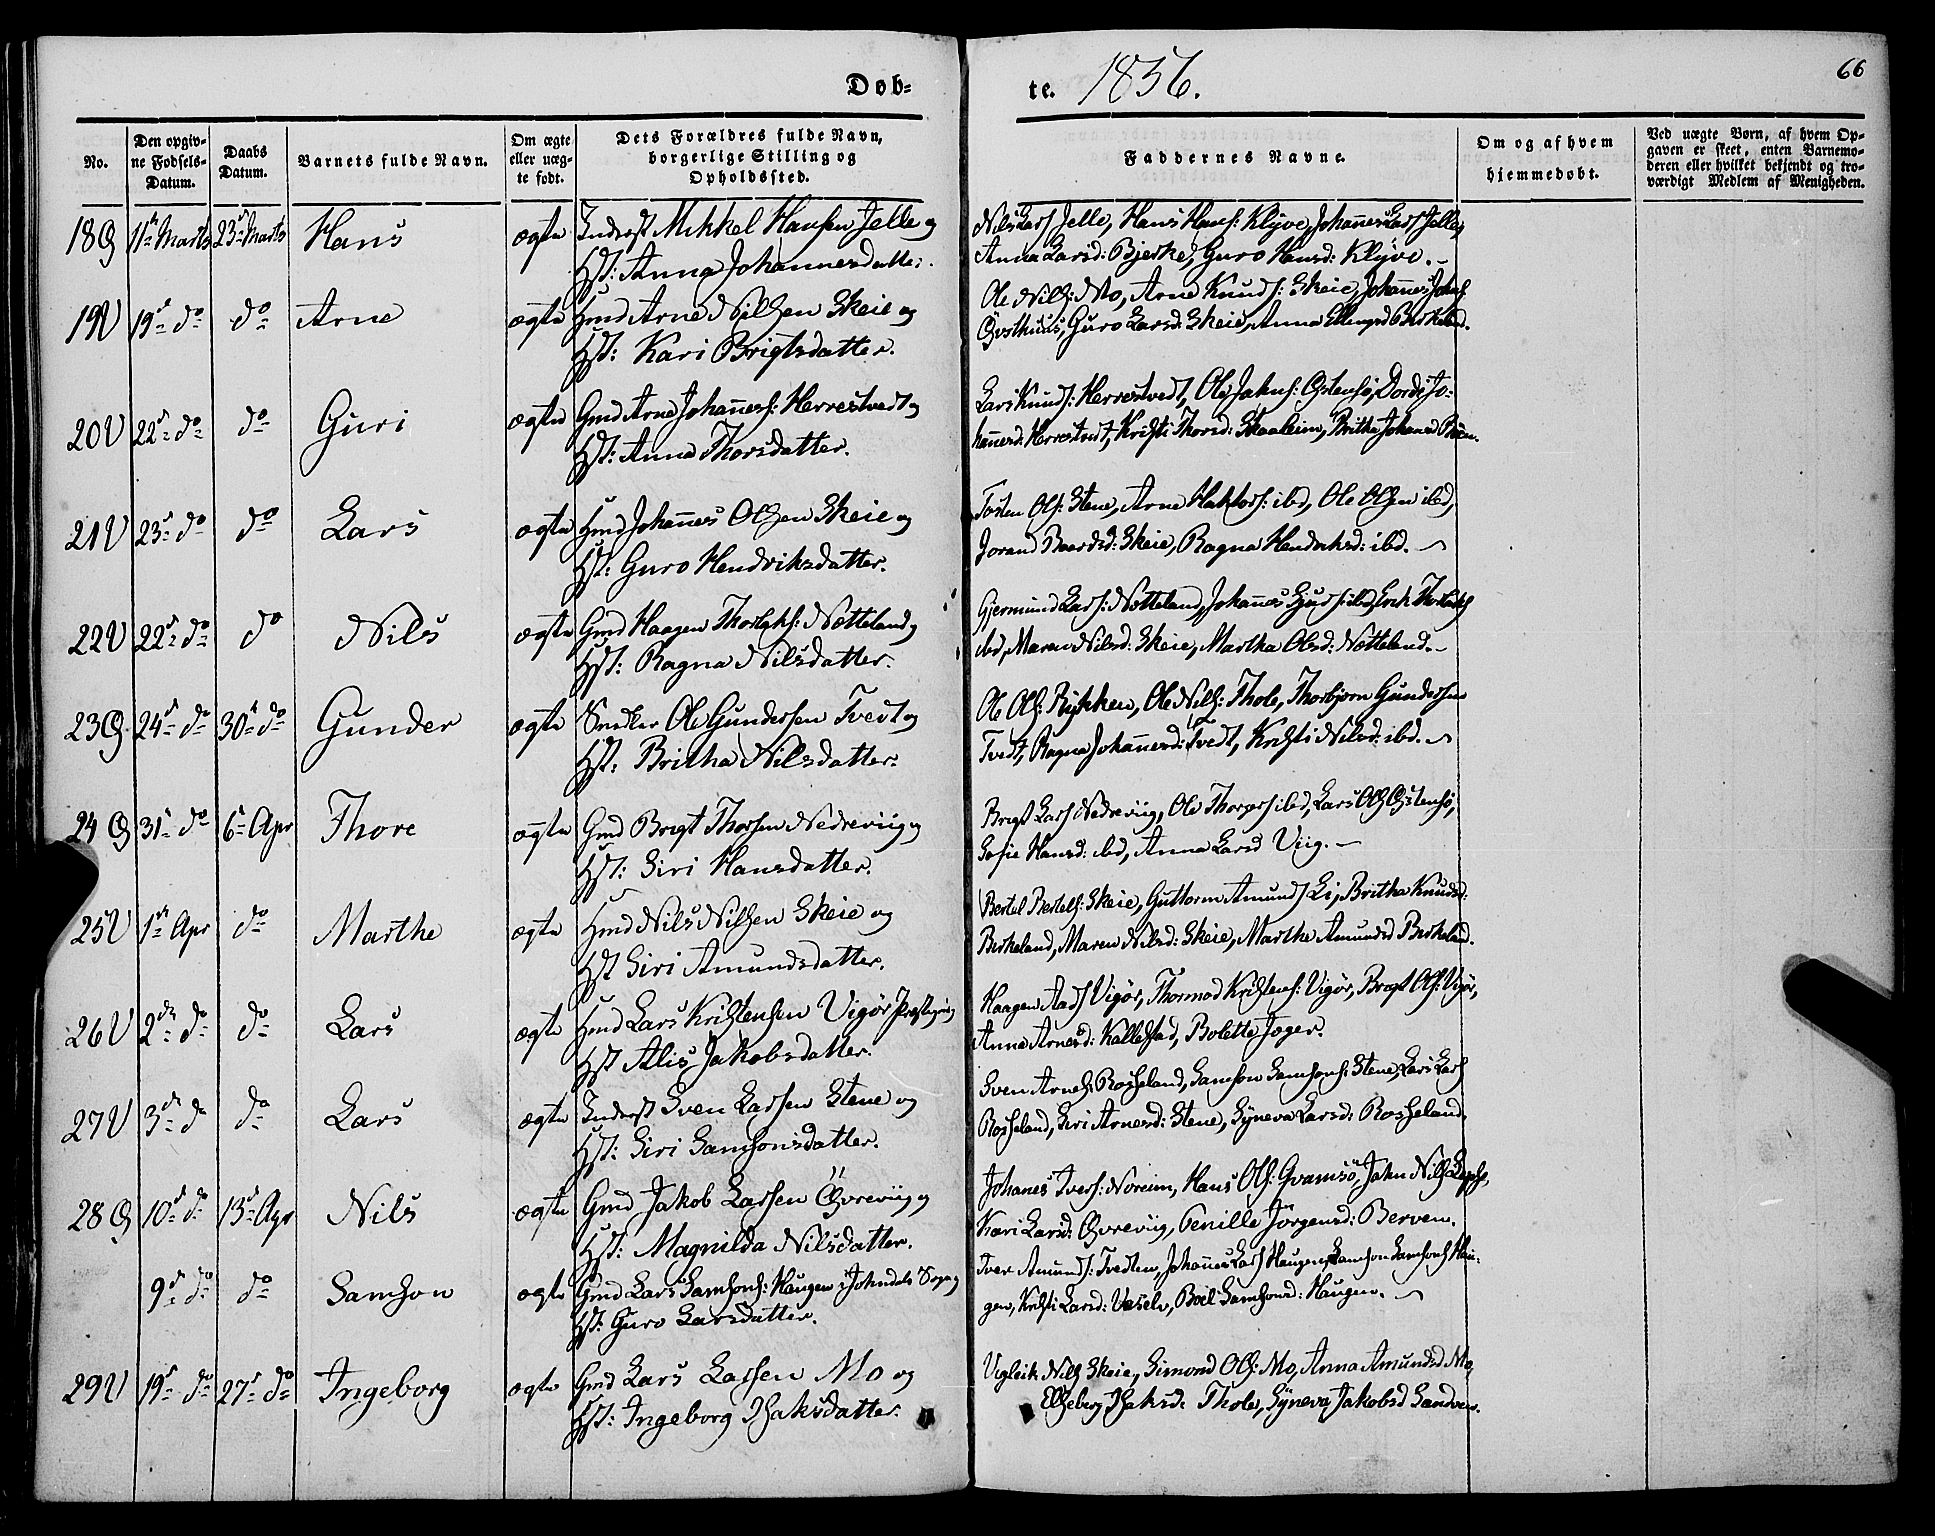 Døb-
te. 1856.
66
No.
Den opgiv-
ne Fødsels-
Datum.
Daabs
Datum.
Barnets fulde Navn.
Om ægte
eller uæg-
te født.
Dets Forældres fulde Navn,
borgerlige Stilling og
Opholdssted.
Faddernes Navne.
Om og af hvem
hjemmedøbt.
Ved uægte Børn, af hvem Op-
gaven er skeet, enten Barnemo-
deren eller hvilket bekjendt og tro-
værdigt Medlem af Menigheden.
18 G 11te Marts 23de Marts Hans ægte Inderst Mikkel Hansen Jelle og
Hst: Anna Johannesdatter.
Nils Lars Jelle, Hans Hans: Klyve, Johannes Lars Jelle,
Anna Larsd: Bjerke, Guro Hansd: Klyve.
19 V 19d do do Arne ægte Hmd Arne Nilsen Skeie og
Hst: Kari Brigtsdatter.
Ole Nils: Mo, Arne Knuds: Skeie, Johannes Johs
Guro Larsd: Skeie, Anna Birkeland.
20 V 22d do do Guri ægte Gmd Arne Johannes: Herrestvedt og
Hst: Anna Thorsdatter.
Lars Knuds: Herrestvedt, Ole Jakns: Østensø, Dorde Jo-
hannesd: Herrestvedt, Kristi Thorsd: Skaaleim, Britha Johansd
21 V 23d do do Lars ægte Hmd Johannes Olsen Skeie og
Hst: Guro Hendriksdatter.
Tosten Ols: Stene, Arne Haktors: ibd, Ole Olsen ibd,
Joran Baardsd: Skeie, Ragna Hendriksd: ibd.
22 V 22d do do Nils ægte Gmd Haagen Thorlaks: Nøtteland og
Hst: Ragna Nilsdatter.
Gjermund Lars: Nøtteland, Johannes ibd, Erik
ibd, Maren Nilsd: Skeie, Martha Olsd: Nøtteland.
23 G 24d do 30te do Gunder ægte Smeller Ole Gundersen Tvedt og
Hst: Britha Nilsdatter.
Ole Ols: Rykken, Ole Nils: Thole, Thorbjørn Gundersen
Tvedt, Ragna Johannesd: Tvedt, Kristi Nilsd: ibd.
24 G 31d do 6d Apr Thore ægte Gmd Brigt Thorsen Nedreviig og
Hst: Siri Hansdatter.
Brigt Lars Nedreviig, Ole Thorgers ibd, Lars Ols Østensø,
Sofie Hansd: ibd, Anna Larsd Viig.
25 V 1te Apr do Marthe ægte Hmd Nils Nilsen Skeie og
Hst Siri Amundsdatter.
Bertel Bertels: Skeie, Guttorm Amunds Li, Britha Knudsd:
Birkeland, Maren Nilsd: Skeie, Marthe Amundsd Birkeland.
26 V 2den do do Lars ægte Hmd Lars Kristensen Vigør og
Hst Alis Jakobsdatter.
Haagen Aads Vigør, Thormod Kristens: Vigør, Brigt Ols: Vigør,
Anna Arnesd: Kallestad, Bolette Jæger.
27 V 3die do do Lars ægte Inderst Sven Larsen Stene og
Hst: Siri Samsonsdatter.
Sven Arnes: Rosseland, Samson Samsons: Stene, Lars Lars
Rosseland, Siri Arnesd: Stene, Syneva Larsd: Rosseland.
28 G 10d do 13d Apr Nils ægte Gmd Jakob Larsen Øvreviig og
Hst: Magnilda Nilsdatter.
Johanes Ivers: Noreim, Hans Ols: Qvamsø, Jahn Nils
Kari Larsd: Øvreviig, Penille Jørgensd: Berven.
9d do do Samson ægte Gmd Lars Samsons: Haugen i Jondals Sogn og
Hst: Guro Larsdatter.
Iver Amunds: Tvedten, Johannes Lars Haugen, Samson Samsons Hau-
gen, Kristi Larsd: Vasele, Boel Samsonsd: Haugen.
29 V 19d do 27d do Ingeborg ægte Gmd Lars Larsen Mo og
Hst: Ingeborg Isaksdatter.
Vigleik Nils Skeie, Simond Ols: Mo, Anna Amundsd Mo,
Elseberg Isaksd: Thole, Syneva Jakobsd Sandven.